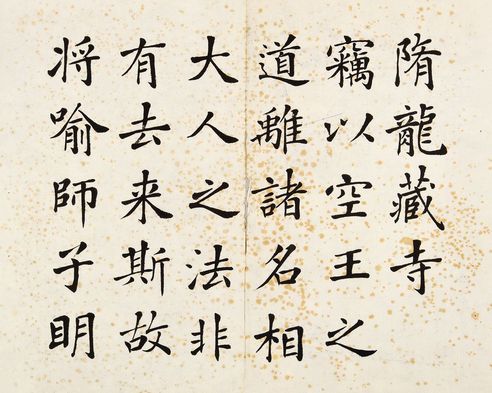 隋龍藏寺
竊以空王之
道離諸名相
大人之法非
有去来斯故
将喻師子明